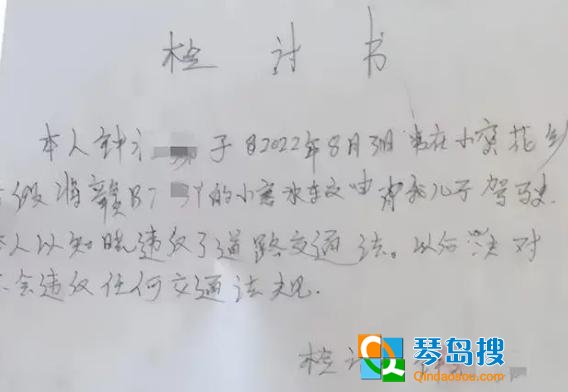 检讨书
本人钟 于 2022年8月3 在小 花乡
假将赣B7 Y的小 车交由 我儿子驾驶
本人以知 违反了道路交通法。以后 对
不会违反任何交通法规.
检讨
琴岛搜
Qindaosou.com